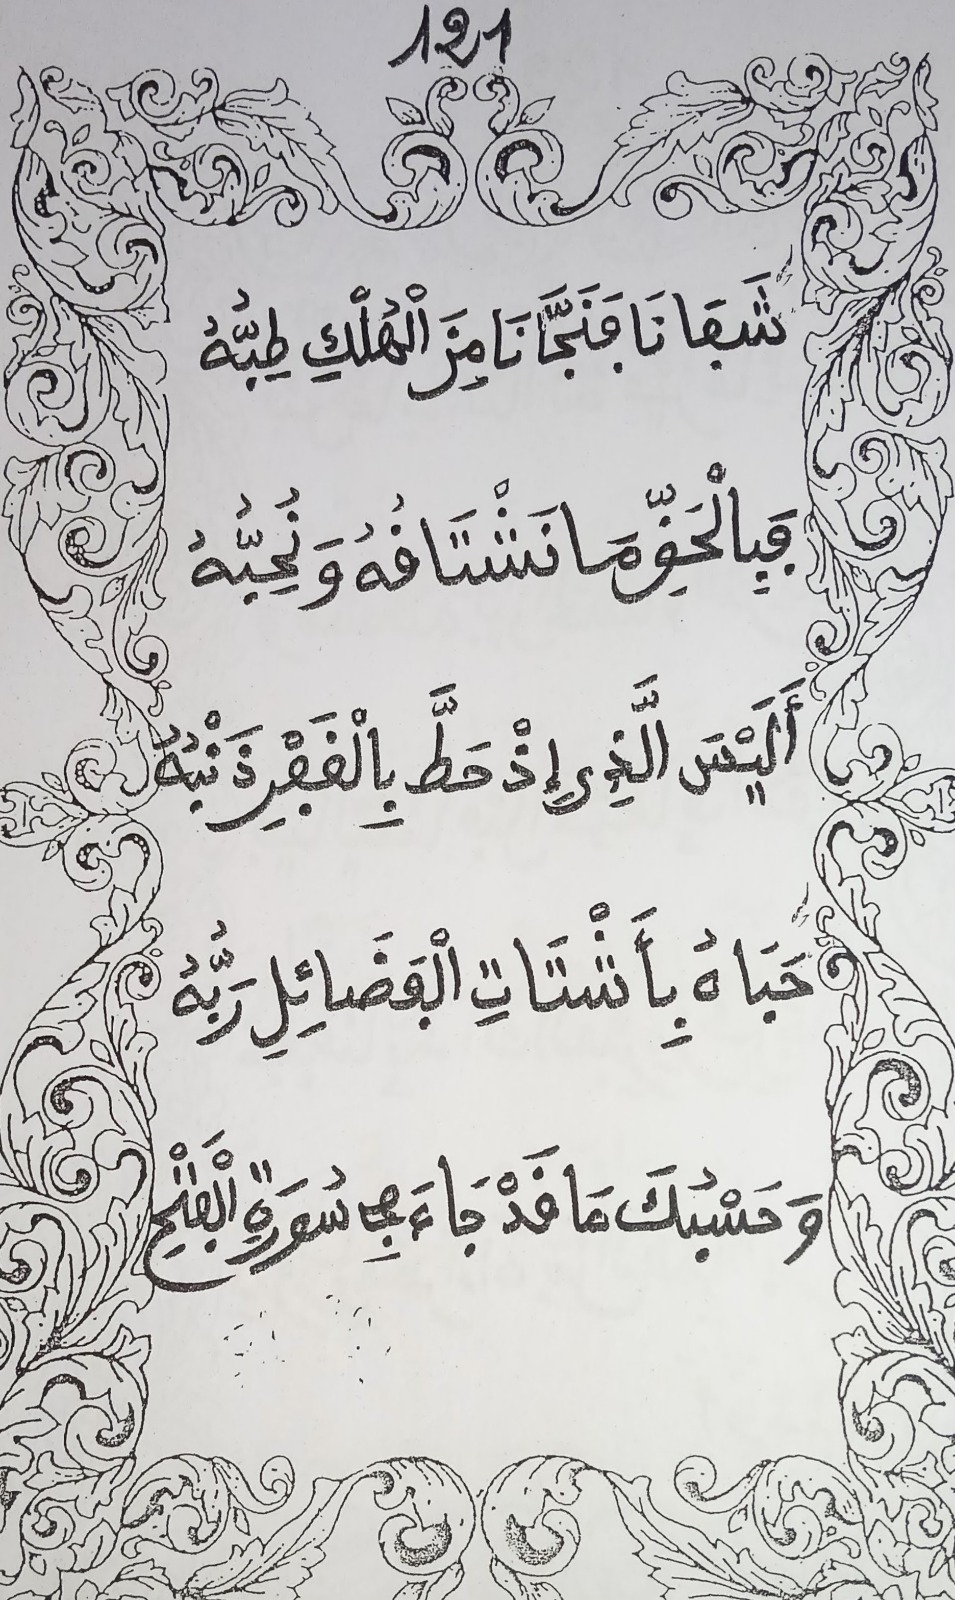 121
شَفَانَا فَنَجَّانَا مِنَ الْهُلْكِ طِبُّهُ
فَبِالْحَقِّ مَا نَشْتَاقُهُ وَنُحِبُّهُ
أَلَيْسَ الَّذِي إِذْ حَطَّ بِالْغَفْرِ ذَنْبُهُ
حَبَاهُ بِأَشْتَاتِ الْفَضَائِلِ رَبُّهُ
وَحَسْبُكَ مَا قَدْ جَاءَ فِي سُورَةِ الْفَتْحِ